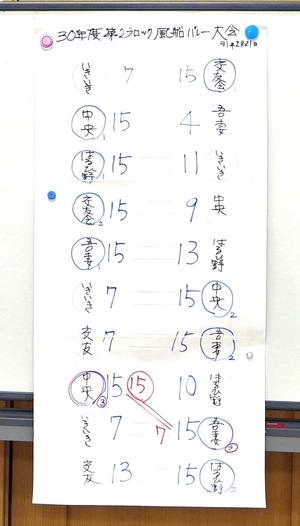 30年度第2ブロック風船バレー大会
31年2月21日
いきいき 7 15 交友会 1
中央 1 15 4 吾妻
はるひ野 1 15 11 いきいき
交友会 2 15 9 中央
吾妻 1 15 13 はるひ野
いきいき 7 15 中央 2
交友 7 15 吾妻 2
中央 ③ 15 ⑮ 10 はるひ野
いきいき 7 7 15 吾妻 ③
交友 13 15 はるひ野 2